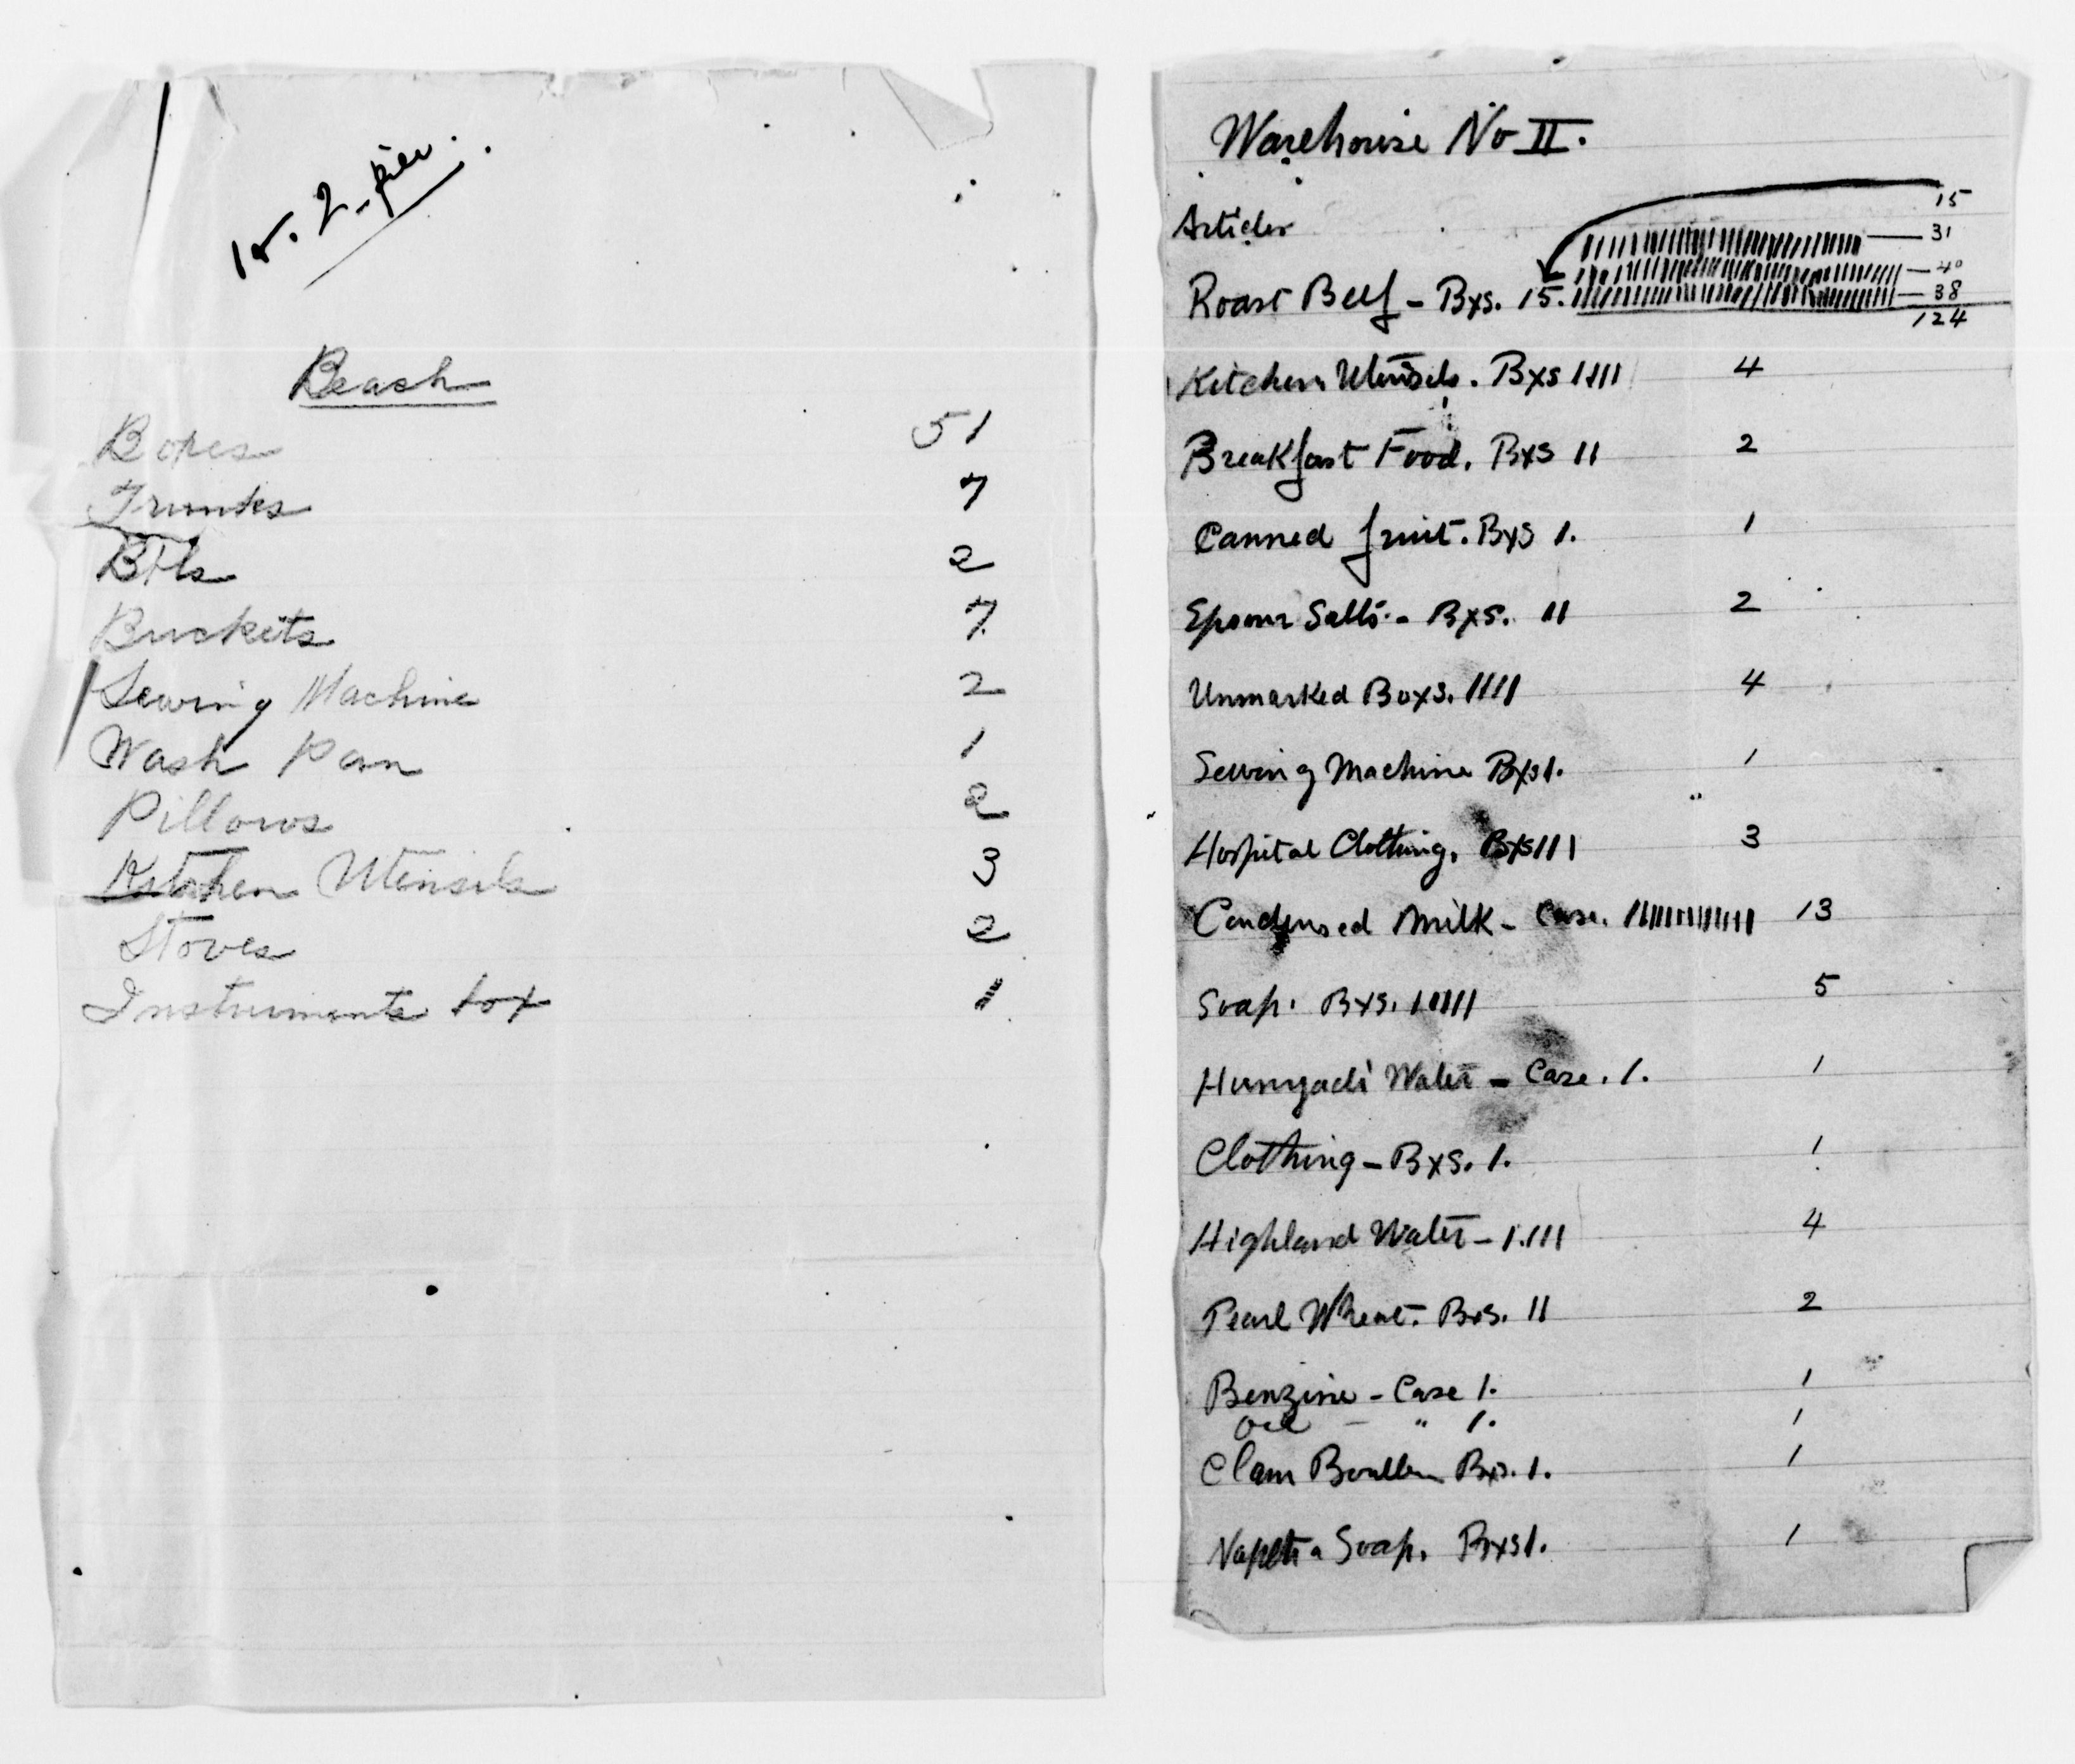 Beach
Boxes 51
Trunks 7
Bbls 2
Buckets 7
Sewing Machine 2
Wash Pan 1
Pillows 2
Kitchen Utensils 3
Stoves 2
Instruments box 1
Warehouse No II.
Articles
15
31
40
Roast Beef - Bxs. 15. 38
124
Kitchen Utensils. Bxs IIII 4
Breakfast Food. Bxs II 2
Canned fruit. Bxs 1. 1
Epsom Salts - Bxs. II 2
Unmarked Boxs. IIII 4
Sewing Machine Bxs 1. 1
Hospital Clothing. Bxs III 3
Condensed Milk - Case. IIIIIIIIIIIII 13
Soap. Bxs. IIIII 5
Hunyadi Water - Case. 1. 1
Clothing - Bxs. 1. 1
Highland Water - IIII 4
Pearl Wheat. Bxs. II 2
Benzine - Case 1. 1
Oil - " 1. 1
Clam Boullen Bxs. 1. 1
Naptha Soap. Bxs 1. 1